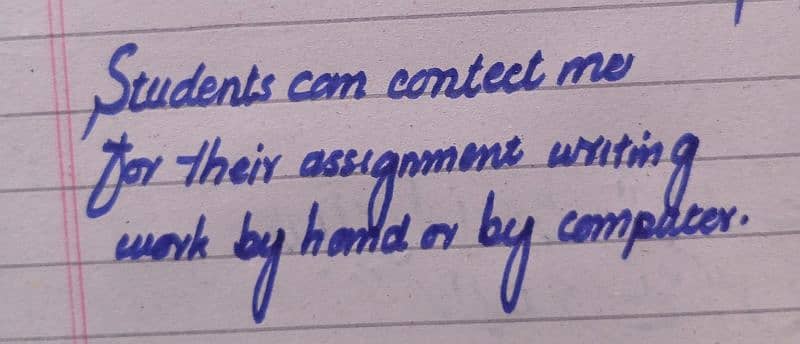 Students can contect me
for their assignment writing
work by hand or by computer.